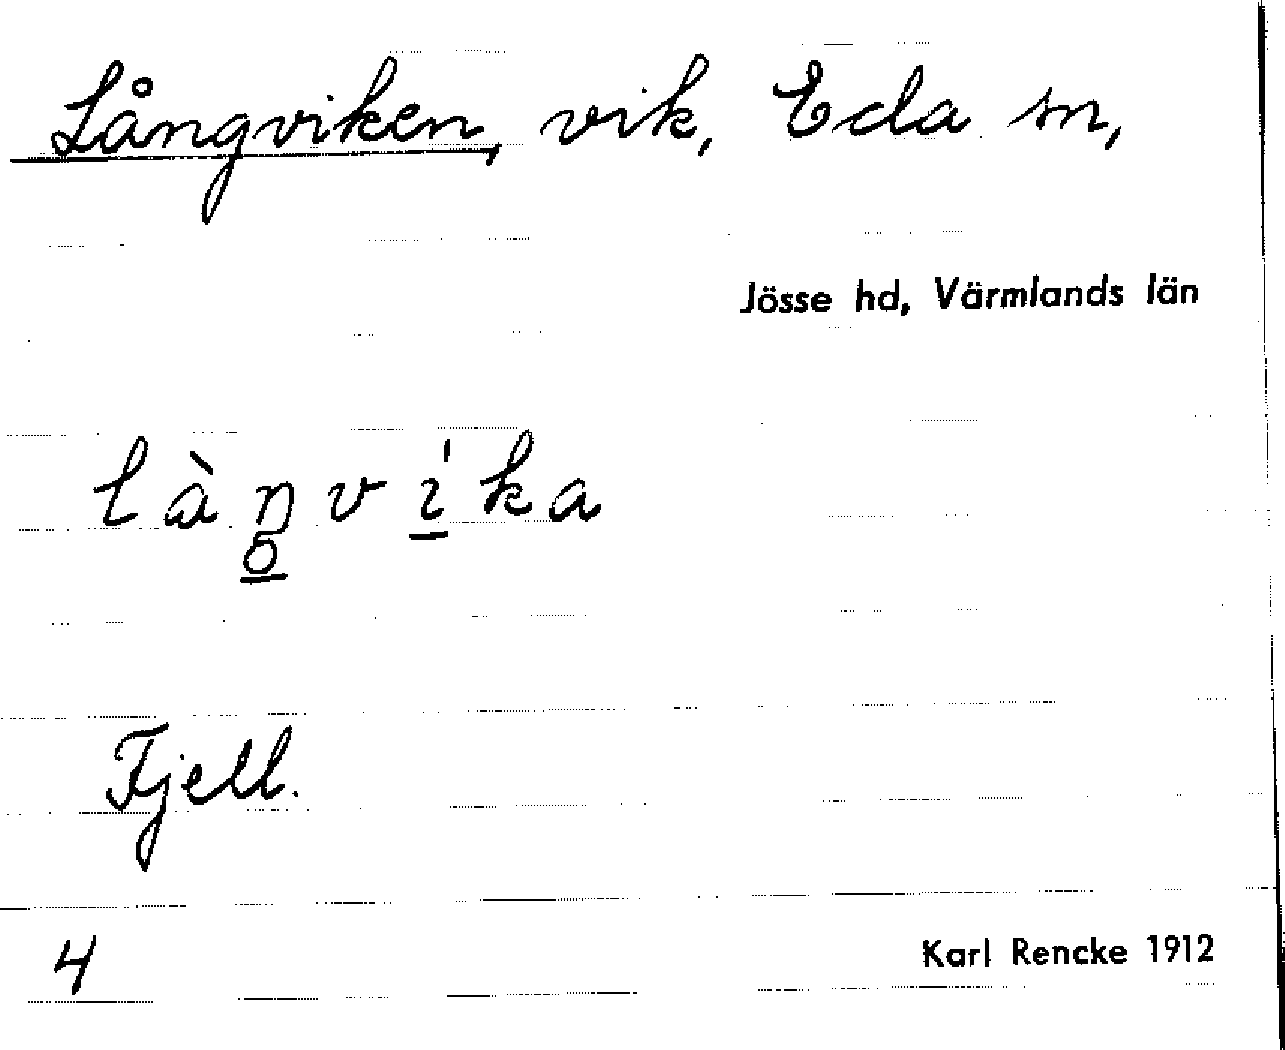 Långviken, vik, Eda sn,
Jösse hd, Värmlands län
làŋ̥vi̱ka
Fjell.
4
Karl Rencke 1912